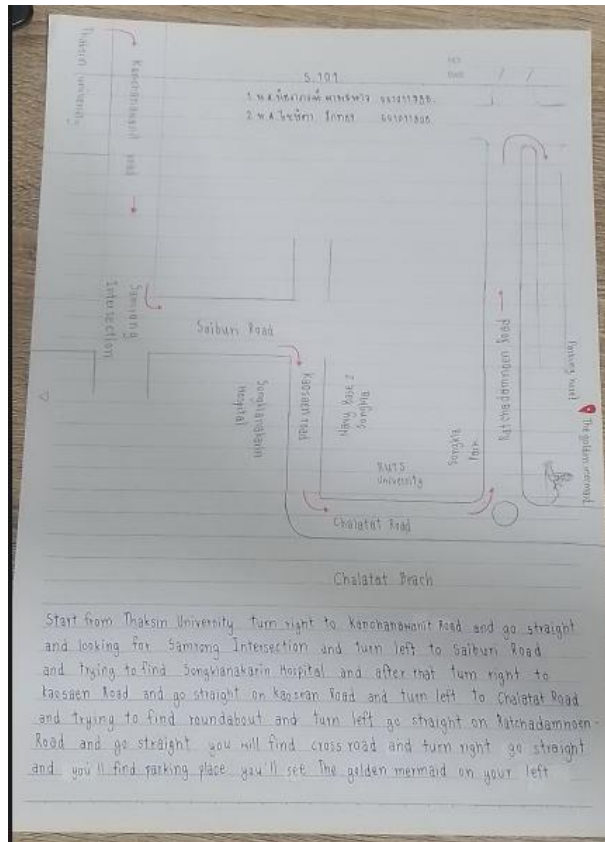 S.101
Thaksin University
Kanchanawanid road
Samrong
Intersection
Saiburi Road
Songklanakarin
Hospital
Kaosaen road
Navy Base 2
Songkla
RUTS
University
Songkla
Chalatat Road
Ratchadamnoen Road
The golden mermaid
Chalatat Beach
Start from Thaksin University turn right to Kanchanawanit Road and go straight
and looking for Samrong Intersection and turn left to Saiburi Road
and trying to find Songklanakarin Hospital and after that turn right to
kaosaen Road and go straight on kaosean Road and turn left to Chalatat Road
and trying to find roundabout and turn left go straight on Ratchadamnoen-
Road and go straight you will find cross road and turn right go straight
and you'll find parking place you'll see The golden mermaid on your left